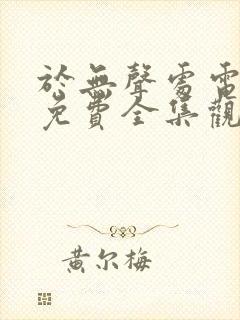 於無聲處電
免費全集觀
黄尔梅